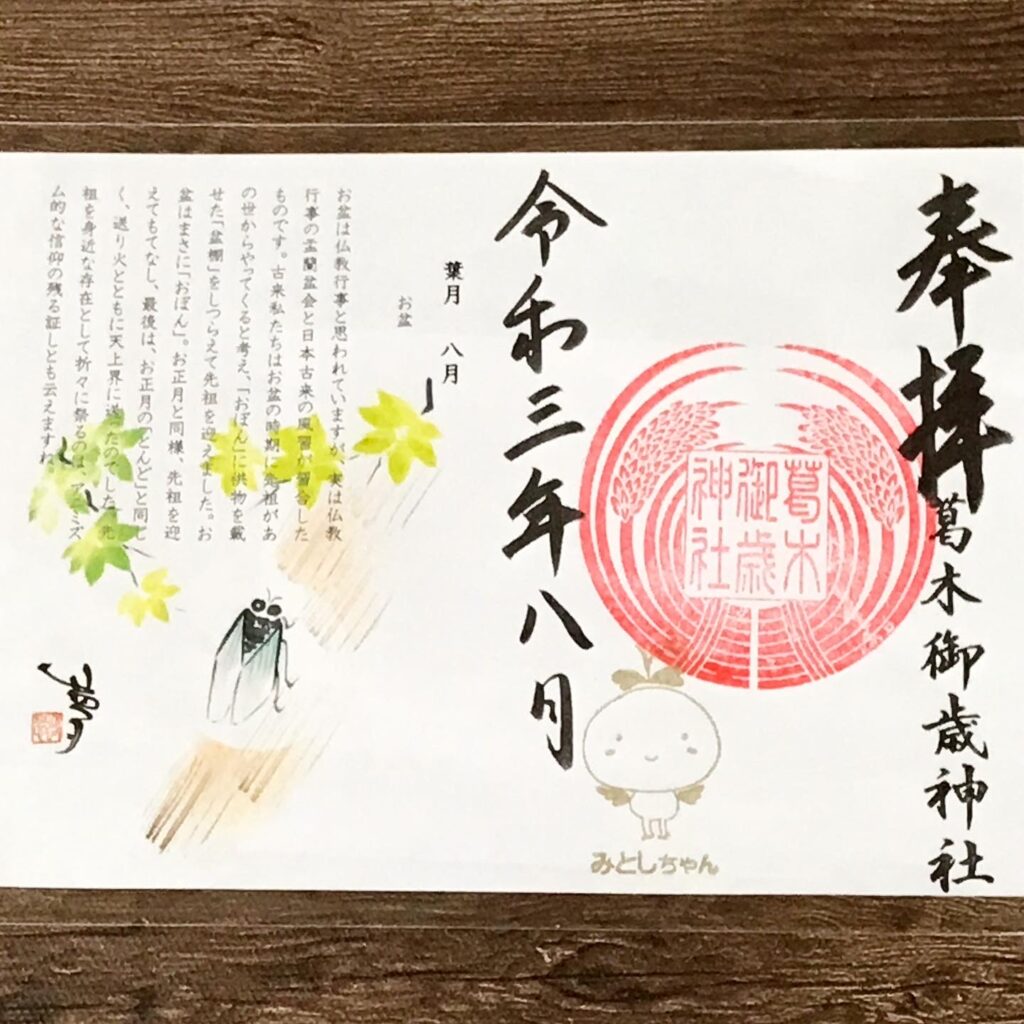 奉拝
葛木御歳神社
葛木
御歳
神社
令和三年八月
みとしちゃん
葉月 八月
お盆
お盆は仏教行事と思われていますが、実は仏教
行事の盂蘭盆会と日本古来の風習が習合した
ものです。古来私たちはお盆の時期に先祖があ
の世からやってくると考え、「おぼん」に供物を載
せた「盆棚」をしつらえて先祖を迎えました。お
盆はまさに「おぼん」。お正月と同様、先祖を迎
えてもてなし、最後は、お正月の「とんど」と同じ
く、送り火とともに天上界に送ったのでした。先
祖を身近な存在として折々に祭るのは、アニミズ
ム的な信仰の残る証しとも云えますね。